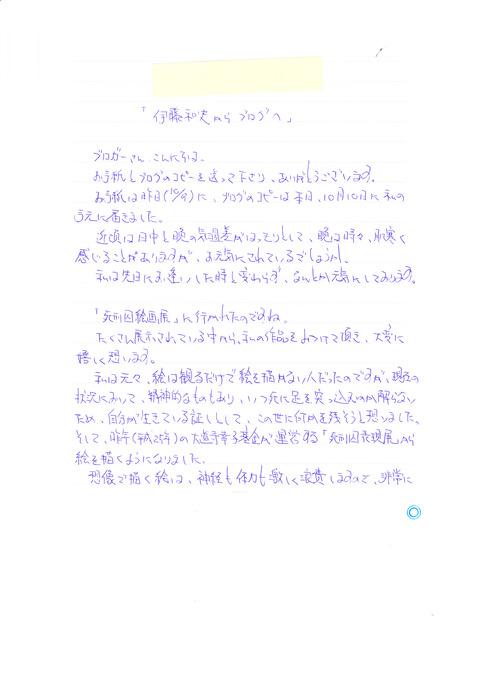 「伊藤和史から ブログへ」
ブロガーさん、こんにちは。
お手紙とブログのコピーを送って下さり、ありがとうございます。
お手紙は昨日(10/9)に、ブログのコピーは本日、10月10日に私の
うえに届きました。
近頃は日中と晩の気温差がはっきりとして、晩は時々、肌寒く
感じることがありますが、お元気にされているでしょうか。
私は先日にお逢いした時と変わらず、なんとか元気にしております。
「死刑囚絵画展」に行かれたのですね。
たくさん展示されている中から、私の作品をみつけて頂き、大変に
嬉しく想います。
私は元々、絵は観るだけで絵を描かない人だったのですが、現在の
状況にあって、精神的なものもあり、いつ死に足を突っ込むのか解らない
ため、自分が生きている証しとして、この世に何かを残そうと想いました。
そして、昨年(平成25年)の大道寺幸子基金が運営する「死刑囚表現展」から
絵を描くようになりました。
想像で描く絵は、神経も体力も激しく浪費しますので、非常に